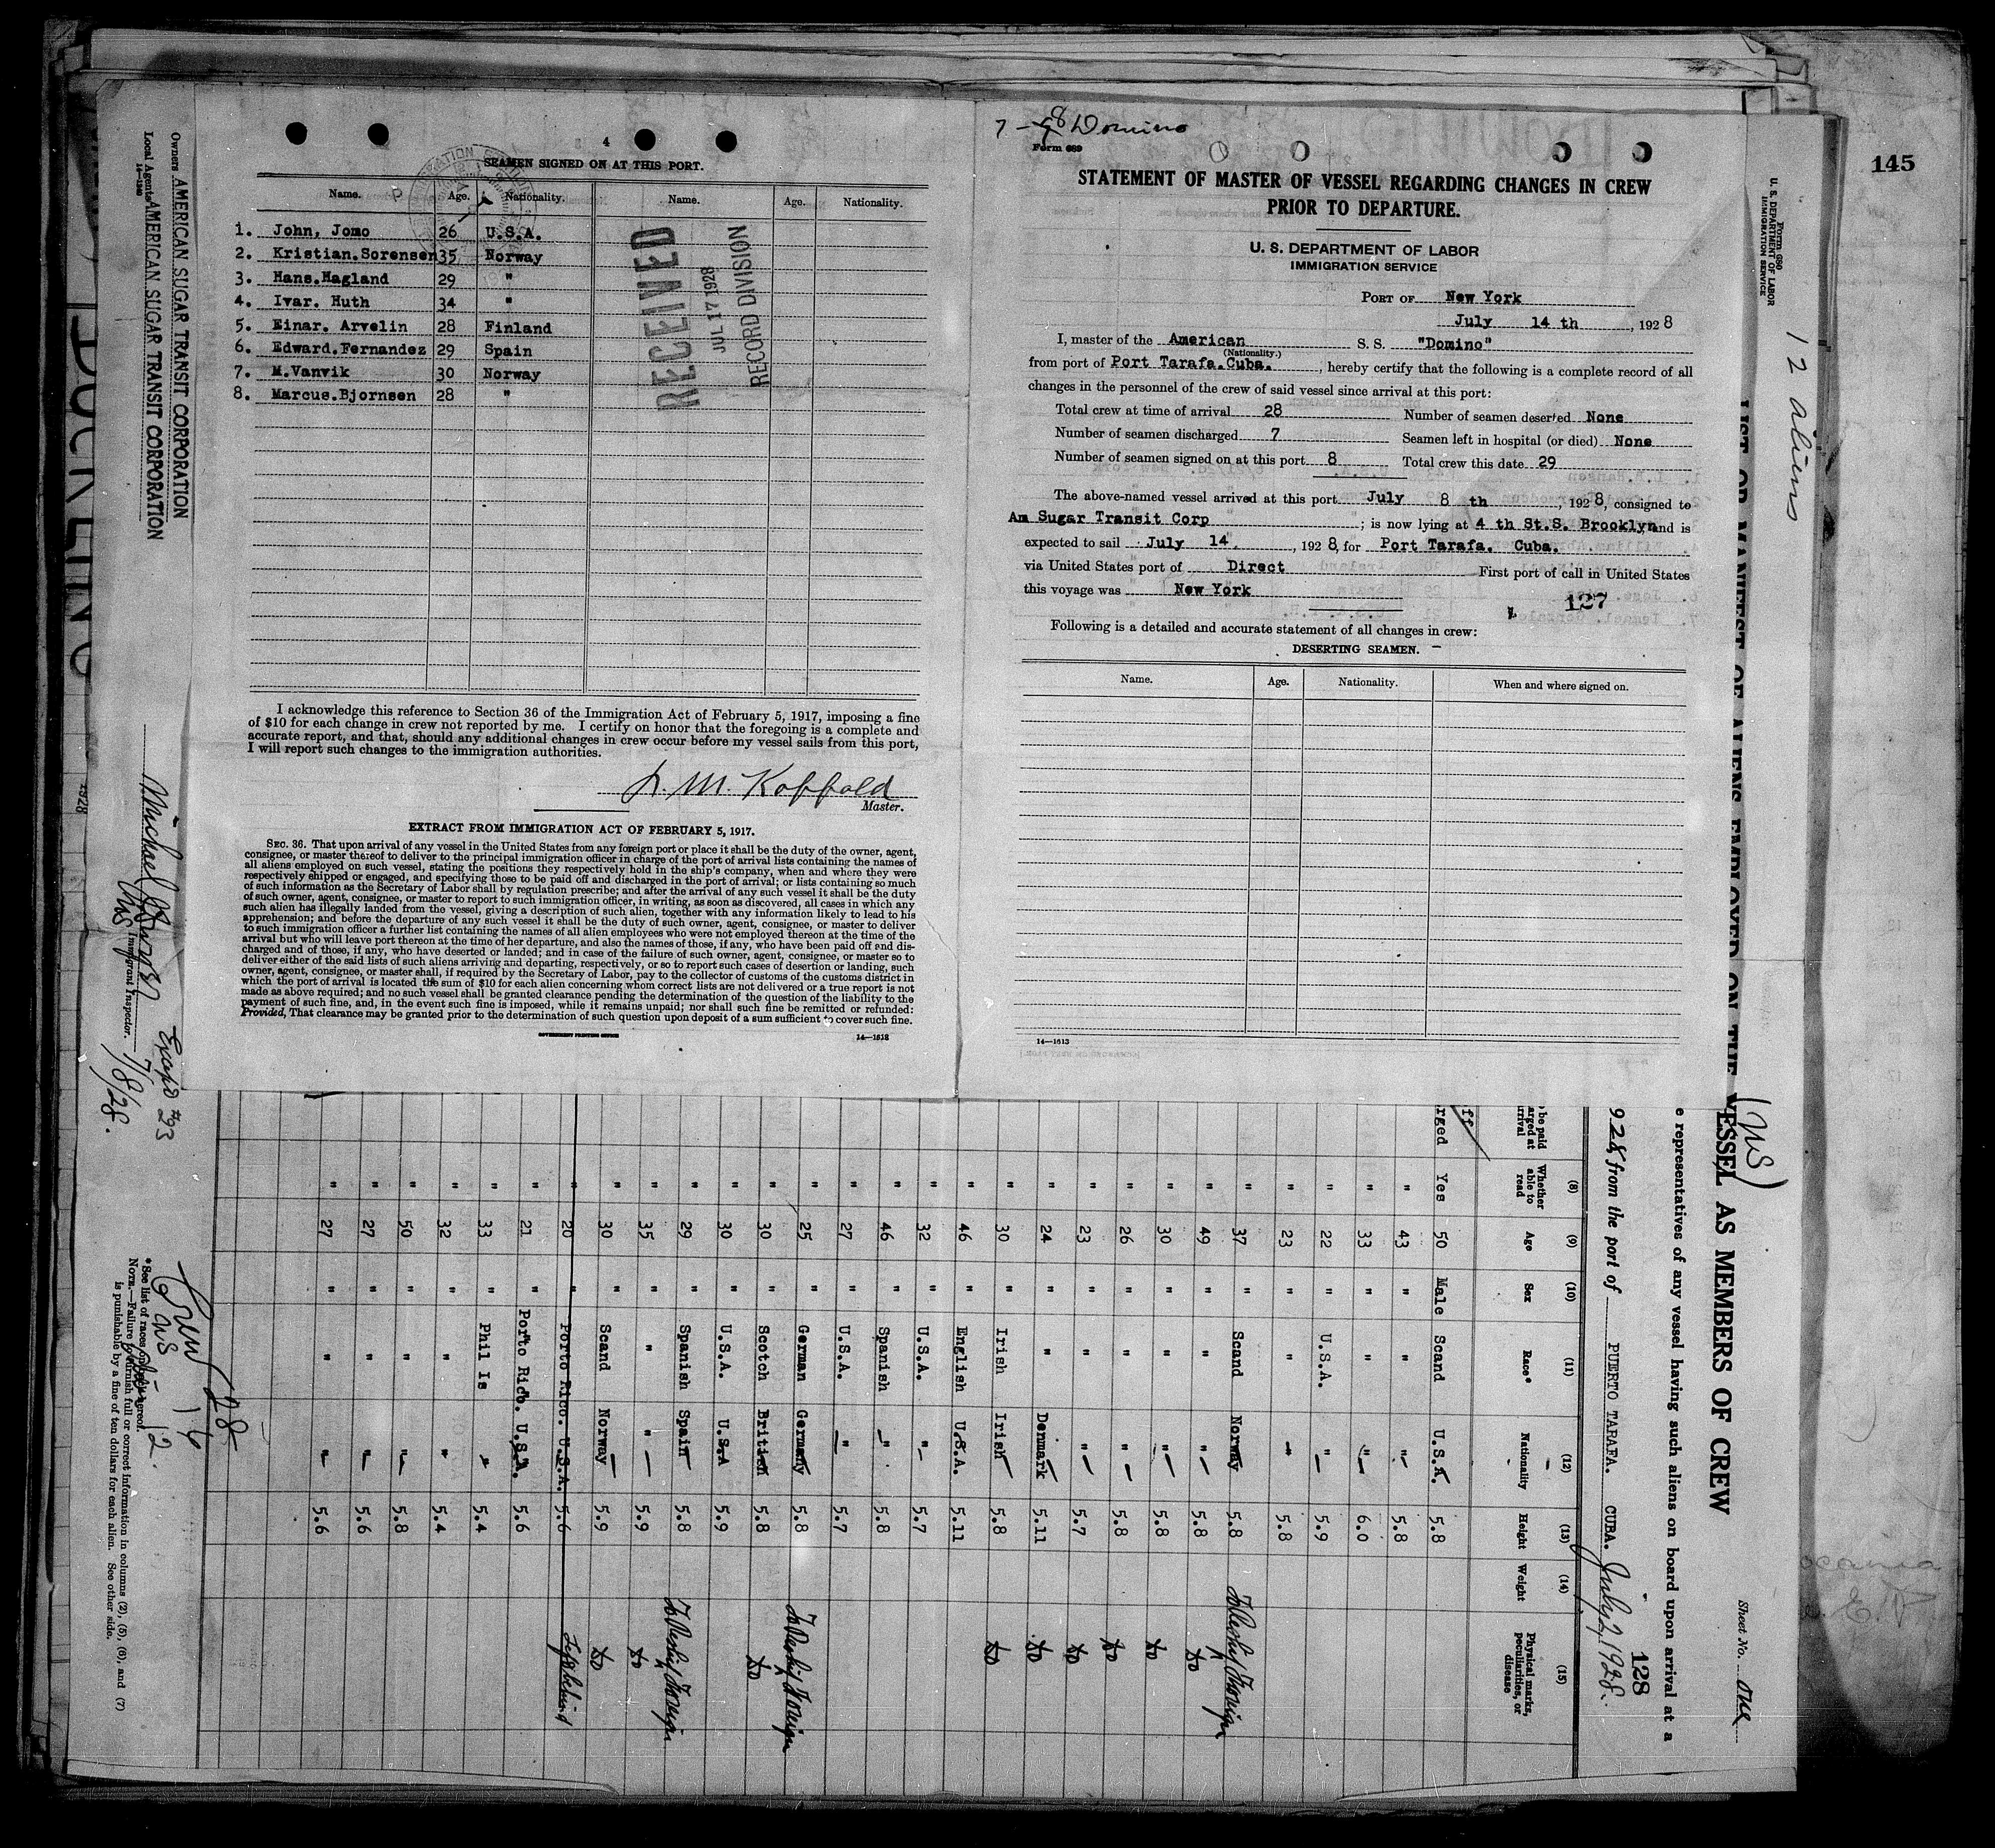 145
4
SEAMEN SIGNED ON AT THIS PORT.
Name. Age. Nationality. Name. Age. Nationality.
1. John, Jomo 26 U.S.A.
2. Kristian.Sorensen 35 Norway
3. Hans.Hagland 29 "
4. Ivar. Huth 34 "
5. Einar. Arvelin 28 Finland
6. Edward.Fernandez 29 Spain
7. M.Vanvik 30 Norway
8. Marcus.Bjornsen 28 "
RECEIVED
JUL 17 1928
RECORD DIVISION
I acknowledge this reference to Section 36 of the Immigration Act of February 5, 1917, imposing a fine
of $10 for each change in crew not reported by me. I certify on honor that the foregoing is a complete and
accurate report, and that, should any additional changes in crew occur before my vessel sails from this port,
I will report such changes to the immigration authorities.
Master.
EXTRACT FROM IMMIGRATION ACT OF FEBRUARY 5, 1917.
SEC. 36. That upon arrival of any vessel in the United States from any foreign port or place it shall be the duty of the owner, agent,
consignee, or master thereof to deliver to the principal immigration officer in charge of the port of arrival lists containing the names of
all aliens employed on such vessel, stating the positions they respectively hold in the ship's company, when and where they were
respectively shipped or engaged, and specifying those to be paid off and discharged in the port of arrival; or lists containing so much
of such information as the Secretary of Labor shall by regulation prescribe; and after the arrival of any such vessel it shall be the duty
of such owner, agent, consignee, or master to report to such immigration officer, in writing, as soon as discovered, all cases in which any
such alien has illegally landed from the vessel, giving a description of such alien, together with any information likely to lead to his
apprehension; and before the departure of any such vessel it shall be the duty of such owner, agent, consignee, or master to deliver
to such immigration officer a further list containing the names of all alien employees who were not employed thereon at the time of the
arrival but who will leave port thereon at the time of her departure, and also the names of those, if any, who have been paid off and dis-
charged and of those, if any, who have deserted or landed; and in case of the failure of such owner, agent, consignee, or master so to
deliver either of the said lists of such aliens arriving and departing, respectively, or so to report such cases of desertion or landing, such
owner, agent, consignee, or master shall, if required by the Secretary of Labor, pay to the collector of customs of the customs district in
which the port of arrival is located the sum of $10 for each alien concerning whom correct lists are not delivered or a true report is not
made as above required; and no such vessel shall be granted clearance pending the determination of the question of the liability to the
payment of such fine, and, in the event such fine is imposed, while it remains unpaid; nor shall such fine be remitted or refunded:
Provided, That clearance may be granted prior to the determination of such question upon deposit of a sum sufficient to cover such fine.
GOVERNMENT PRINTING OFFICE 14—1613
7 - 98 Domino
Form 689
STATEMENT OF MASTER OF VESSEL REGARDING CHANGES IN CREW
PRIOR TO DEPARTURE.
U. S. DEPARTMENT OF LABOR
IMMIGRATION SERVICE
PORT OF New York
July 14 th, 1928
I, master of the American S. S. "Domino"
(Nationality.)
from port of Port Tarafa.Cuba., hereby certify that the following is a complete record of all
changes in the personnel of the crew of said vessel since arrival at this port:
Total crew at time of arrival 28 Number of seamen deserted None
Number of seamen discharged 7 Seamen left in hospital (or died) None
Number of seamen signed on at this port 8 Total crew this date 29
The above-named vessel arrived at this port July 8 th, 1928, consigned to
Am Sugar Transit Corp; is now lying at 4 th St.S. Brooklyn and is
expected to sail July 14, 1928, for Port Tarafa. Cuba.
via United States port of Direct First port of call in United States
this voyage was New York
127
Following is a detailed and accurate statement of all changes in crew:
DESERTING SEAMEN.
Name. Age. Nationality. When and where signed on.
14—1613
Owners AMERICAN SUGAR TRANSIT CORPORATION
Local Agents AMERICAN SUGAR TRANSIT CORPORATION
14—1240
Immigrant Inspector.
7/8/28.
Form 680
U. S. DEPARTMENT OF LABOR
IMMIGRATION SERVICE
12 aliens
LIST OR MANIFEST OF ALIENS EMPLOYED ON THE VESSEL AS MEMBERS OF CREW
Sheet No. one
e representatives of any vessel having such aliens on board upon arrival at a
128
928, from the port of PUERTO TARAFA. CUBA. July 2, 1928.
(8) (9) (10) (11) (12) (13) (14) (15)
Whether able to read Age Sex Race* Nationality Height Weight Physical marks, peculiarities, or disease
rged Yes 50 Male Scand U.S.A. 5.8
" 43 " " " 5.8
" 33 " " " 6.0
" 22 " U.S.A. " 5.9
" 23 " " " 5.8
" 37 " Scand Norway 5.8
" 49 " " " 5.8 do
" 30 " " " 5.8 do
" 26 " " " 5.8 do
" 23 " " " 5.7 do
" 24 " " Denmark 5.11 do
" 30 " Irish Irish 5.8 do
" 46 " English U.S.A. 5.11
" 32 " U.S.A. " 5.7
" 46 " Spanish " 5.8
" 27 " U.S.A. " 5.7
" 25 " German Germany 5.8
" 30 " Scotch British 5.8 do
" 30 " U.S.A. U.S.A 5.9
" 29 " Spanish Spain 5.8
" 35 " " " 5.9 do
" 30 " Scand Norway 5.9 do
" 20 " Porto Rico. U.S.A. 5.6 Left behind
" 21 " Porto Rico. U.S.A. 5.6
" 33 " Phil Is " 5.4
" 32 " " " 5.4
" 50 " " " 5.8
" 27 " " " 5.6
" 27 " " " 5.6
Crew 28
US 16
12.
*See list of races on back hereof.
NOTE.—Failure to furnish full or correct information in columns (2), (5), (6), and (7)
is punishable by a fine of ten dollars for each alien. See other side.